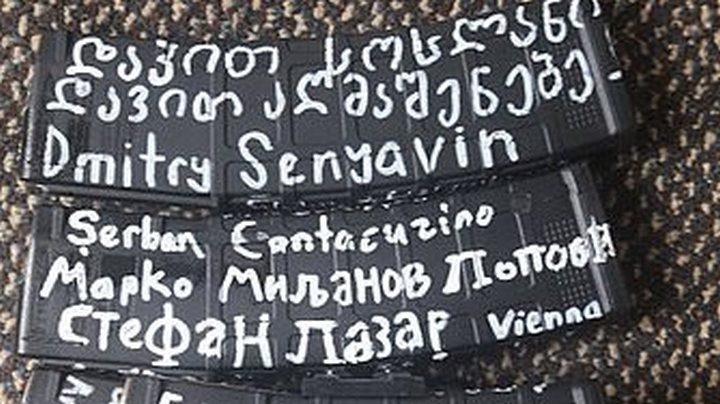 დავით სოსლანი
დავით აღმაშენებე
Dmitry Senyavin
Șerban Cantacuzino
Марко Миљанов Попови
Стефан Лазар Vienna